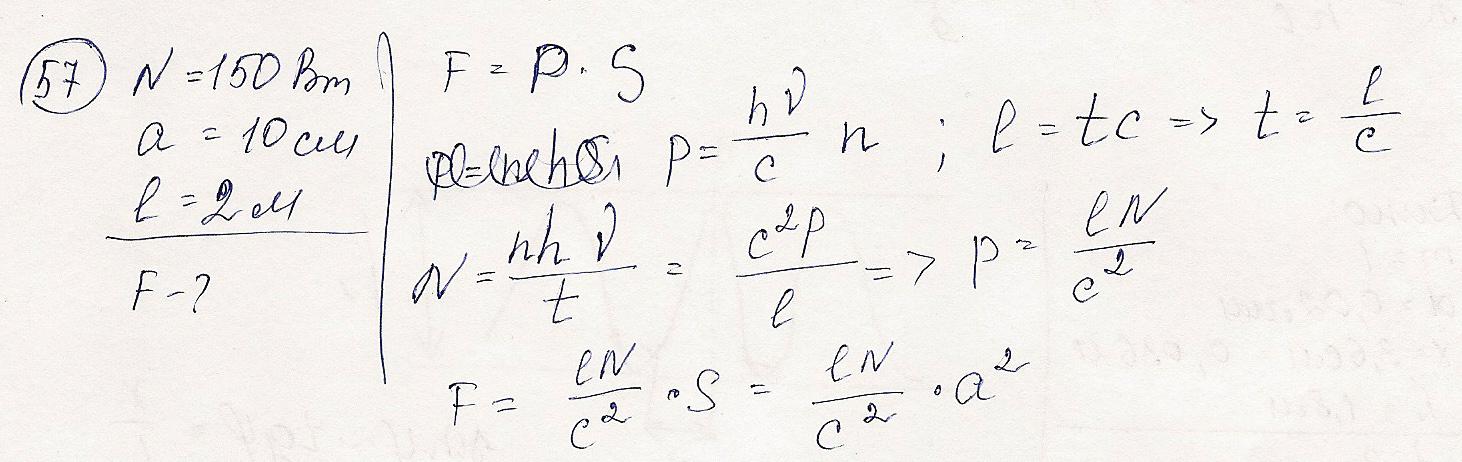 57 N = 150 Вт
a = 10 см
l = 2 м
F - ?
F = P · S
p = hν/c n ; l = tc => t = l/c
N = nhν/t = c²p/l => p = lN/c²
F = lN/c² · S = lN/c² · a²